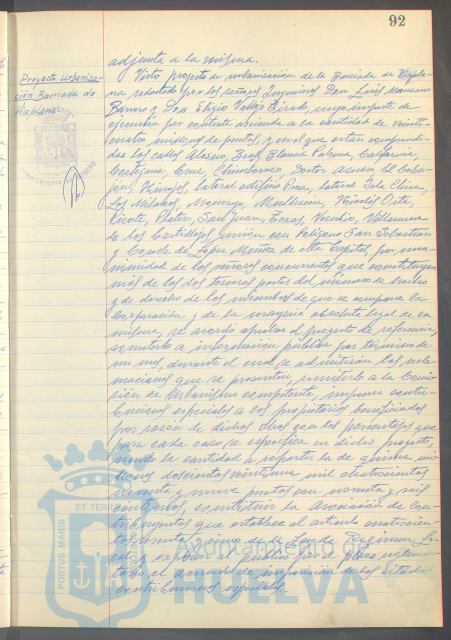 92
adjunta a la misma.
Proyecto urbaniza-
ción Barriada de
Viaplana
Visto proyecto de urbanización de la Barriada de Viapla-
na redactado por los señores Ingenieros Don Luis Manzano
y Don Eligio Vallejo cuyo importe de
ejecución por contrata asciende a la cantidad de veinti-
cuatro millones de pesetas, y en el que están comprendi-
das las calles Alosno, Beas, Blanca Paloma, California
Cartagena, Cruz, Chimborazo, Doctor
Hinojos, lateral edificio Pinos, lateral Isla Chica,
Los Milanos, Moncayo, Mulhacen, Oeste,
Pirote, Platero, San Juan, Texas, Vesubio, Villanueva
de los Castillejos, unión con Polígono San Sebastián
y Conde de López Muñoz de esta Capital, por una-
nimidad de los señores concurrentes que constituyen
más de las dos terceras partes del número de hecho
y de derecho de los miembros de que se compone la
Corporación y de la mayoría absoluta legal de la
misma, se acordó aprobar el proyecto de referencia,
someterlo a información pública por término de
un mes, durante el cual se admitirán las recla-
maciones que se presenten, remitirlo a la Comi-
sión de Urbanismo competente, imponer contri-
buciones especiales a los propietarios beneficiados
por razón de dichas obras con los porcentajes que
para cada caso se especifica en dicho proyecto,
siendo la cantidad a repartir la de quince mi-
llones doscientas veintiuna mil cuatrocientas
noventa y nueve pesetas con noventa y seis
céntimos, constituir la Asociación de Con-
tribuyentes que establece el artículo cuatrocien-
tos sesenta y cinco de la Ley de Régimen Lo-
cal, y exponer al público por el plazo reglamen-
tario el acuerdo de imposición de las citadas
contribuciones especiales.
PORTUS MARIS
ET TERRAE
Ayuntamiento de
HUELVA